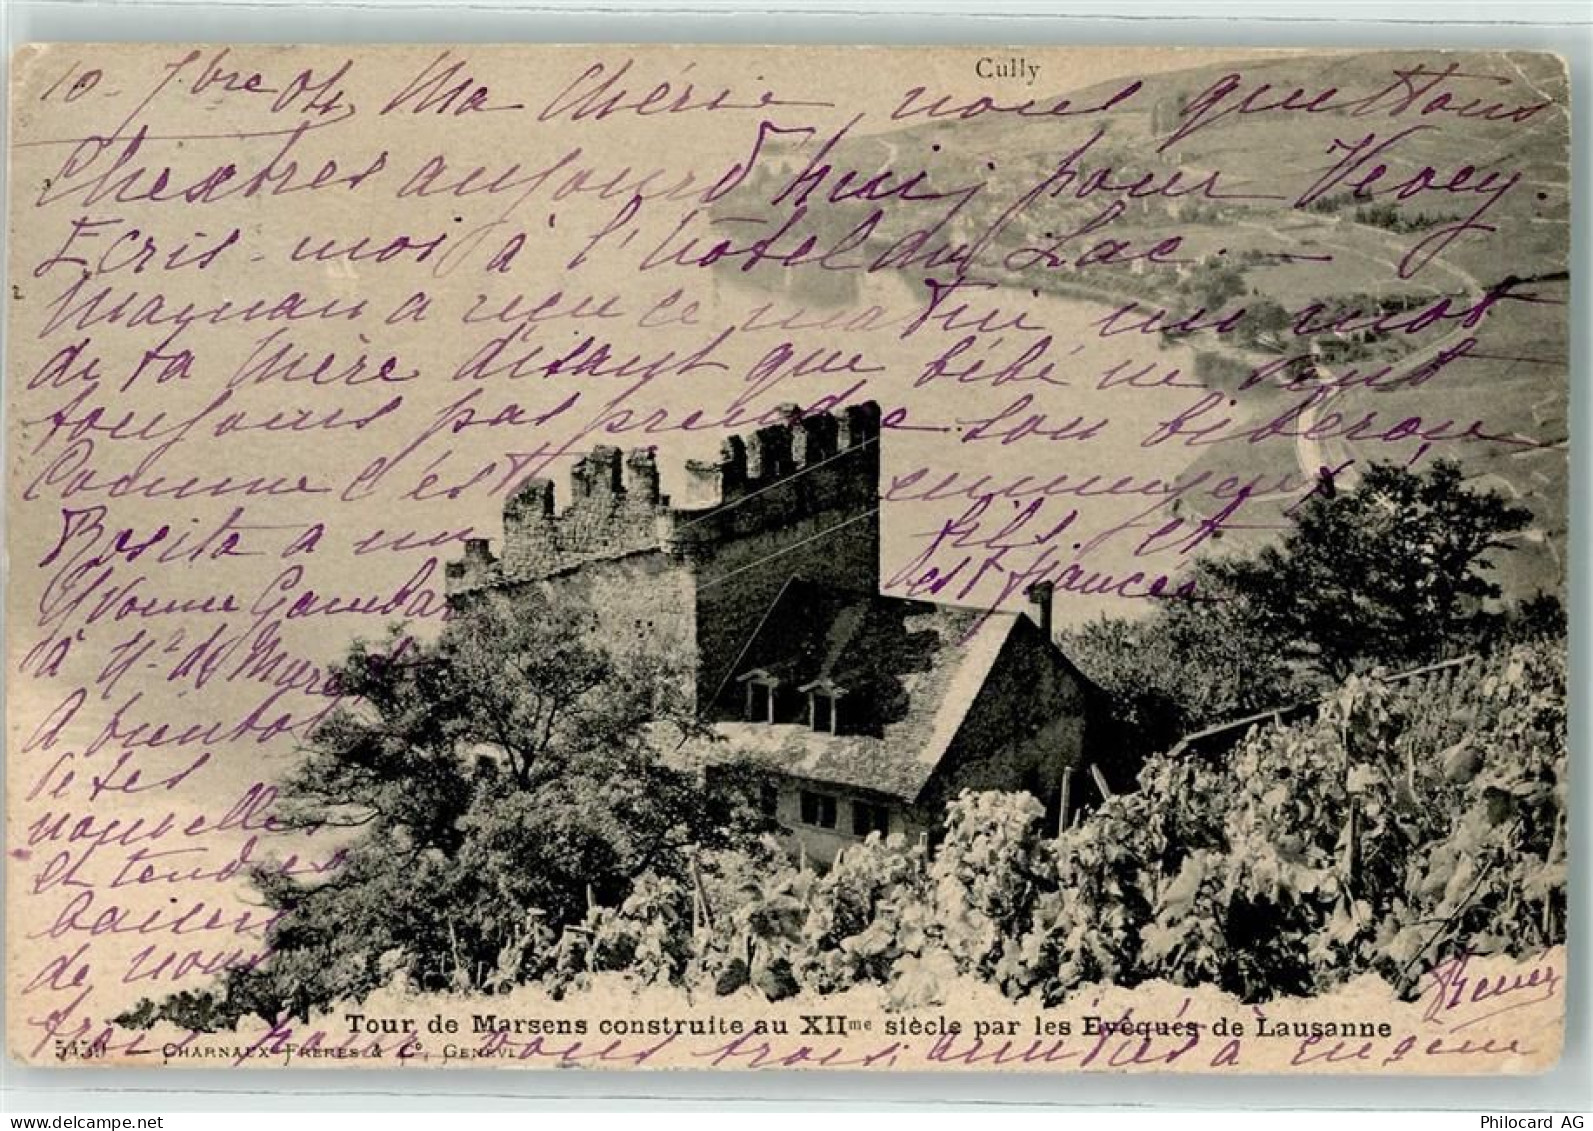 Cully
10 - 7bre 04, Ma Chérie, nous quittons
Chexbres aujourd'hui pour Vevey.
Ecris-moi à l'hôtel du Lac. —
Maman a reçu ce matin un mot
de ta Mère disant que bébé ne veut
toujours pas prendre son biberon
Comme c'est ennuyeux
Rosita a un fils. et
Yvonne est fiancée
à Mr de Muret
A bientôt
de tes
nouvelles
et tendres
baisers
de nous
trois pour vous trois, amitiés à Eugénie
Renée
Tour de Marsens construite au XIIme siècle par les Evêques de Lausanne
5459 — CHARNAUX FRÈRES & Co, GENÈVE
Philocard AG